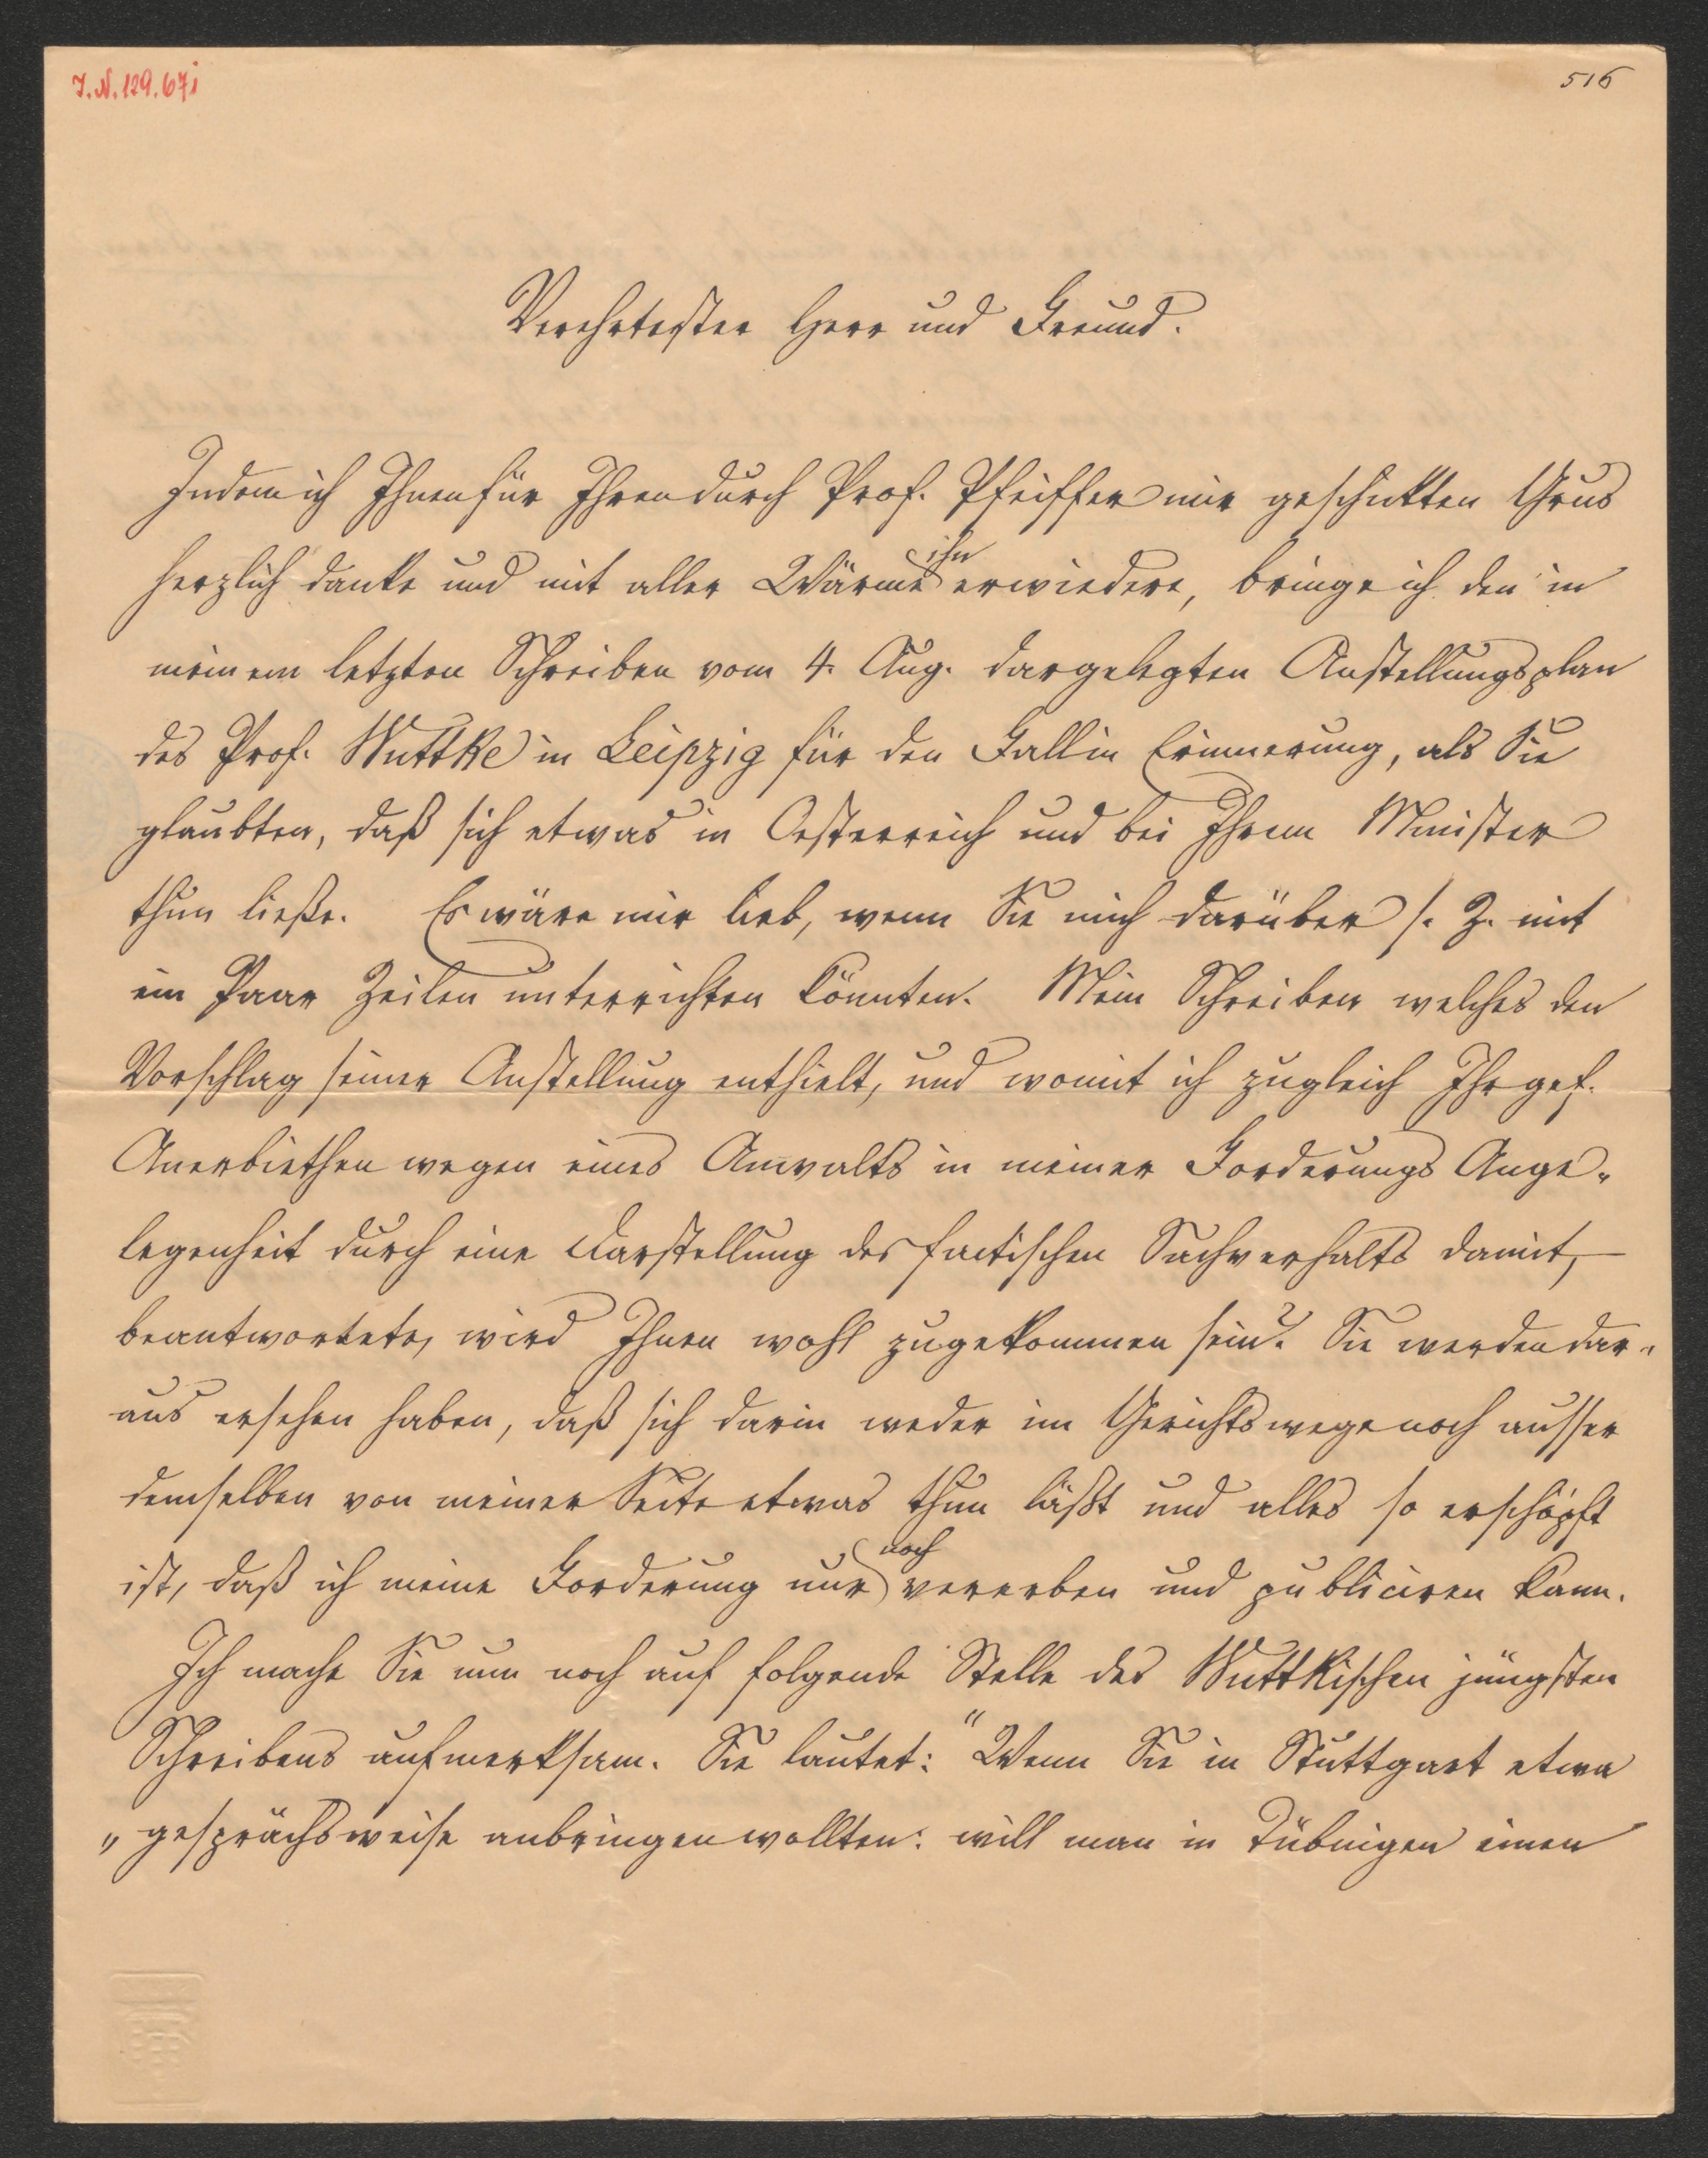 I.N. 129.671
516
Verehrtester Herr und Freund.
Indem ich Ihnen für Ihren durch Prof. Pfeiffer mir geschickten Grus
herzlich danke und mit aller Wärme ihn erwiedere, bringe ich den in
meinem letzten Schreiben vom 4. Aug. dargelegten Anstellungsplan
des Prof. Wuttke in Leipzig für den Fall in Erinnerung, als Sie
glaubten, daß sich etwas in Oesterreich und bei Ihrem Minister
thun ließe. Es wäre mir lieb, wenn Sie mich darüber s. Z. mit
ein Paar Zeilen unterrichten könnten. Mein Schreiben welches den
Vorschlag seiner Anstellung enthielt, und womit ich zugleich Ihr gef.
Anerbiethen wegen eines Anwalts in meiner Forderungs Ange-
legenheit durch eine Darstellung des factischen Sachverhalts damit,
beantwortete, wird Ihnen wohl zugekommen sein? Sie werden dar-
aus ersehen haben, daß sich darin weder im Gerichtswege noch ausser
demselben von meiner Seite etwas thun läßt und alles so erschöpft
ist, daß ich meine Forderung nur noch vererben und publiciren kann.
Ich mache Sie nun noch auf folgende Stelle des Wuttkischen jüngsten
Schreibens aufmerksam. Sie lautet: "Wenn Sie in Stuttgart etwa
„gesprächsweise anbringen wollten: will man in Tübingen einen